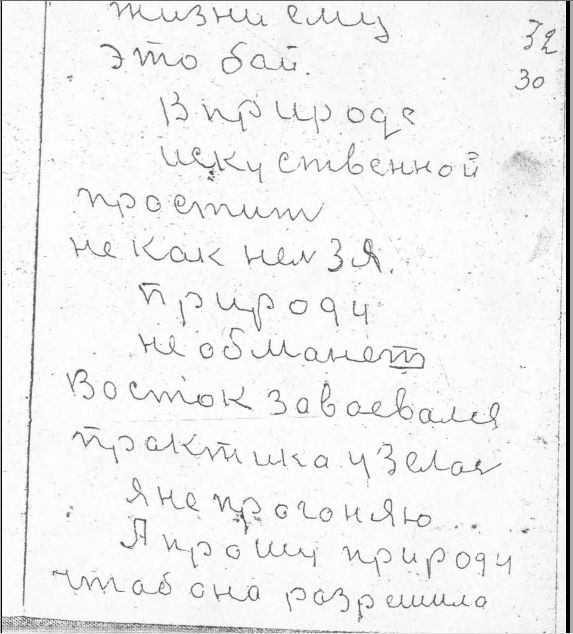 жизни ему
32
это бай.
30
В природе
искуственной
простит
не как нелзя.
природу
не обманет
Восток заваевался
практика узелов
я не прогоняю
Я прошу природу
чтаб она разрешила